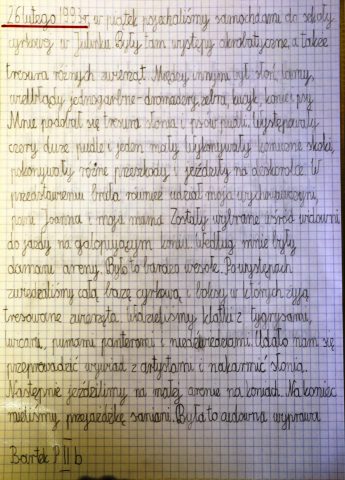 26 lutego 1993r. w piątek pojechaliśmy samochodami do szkoły
cyrkowej w Julinku. Były tam występy akrobatyczne, a także
tresura różnych zwierząt. Między innymi był słoń, lamy,
wielbłądy jednogarbne - dromadery, zebra, kucyk, konie i psy.
Mnie podobał się tresura słonia i psów pudli. Występowały
cztery duże pudle i jeden mały. Wykonywały komiczne skoki,
pokonywały różne przeszkody i jeździły na deskorolce. W
przedstawieniu brała również udział moja wychowawczyni,
pani Joanna i moja mama. Zostały wybrane wśród widowni
do jazdy na galopującym koniu. Według mnie były
damami areny. Było to bardzo wesołe. Po występach
zwiedzaliśmy całą bazę cyrkową i boksy w których żyją
tresowane zwierzęta. Widzieliśmy klatki z tygrysami,
lwami, pumami panterami i niedźwiedziami. Udało nam się
przeprowadzić wywiad z artystami i nakarmić słonia.
Następnie jeździliśmy na małej arenie na koniach. Na koniec
mieliśmy przejażdżkę saniami. Była to cudowna wyprawa
Bartek P. II b